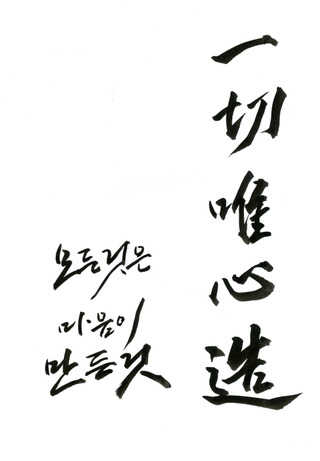 一切唯心造
모든것은
마음이
만든것